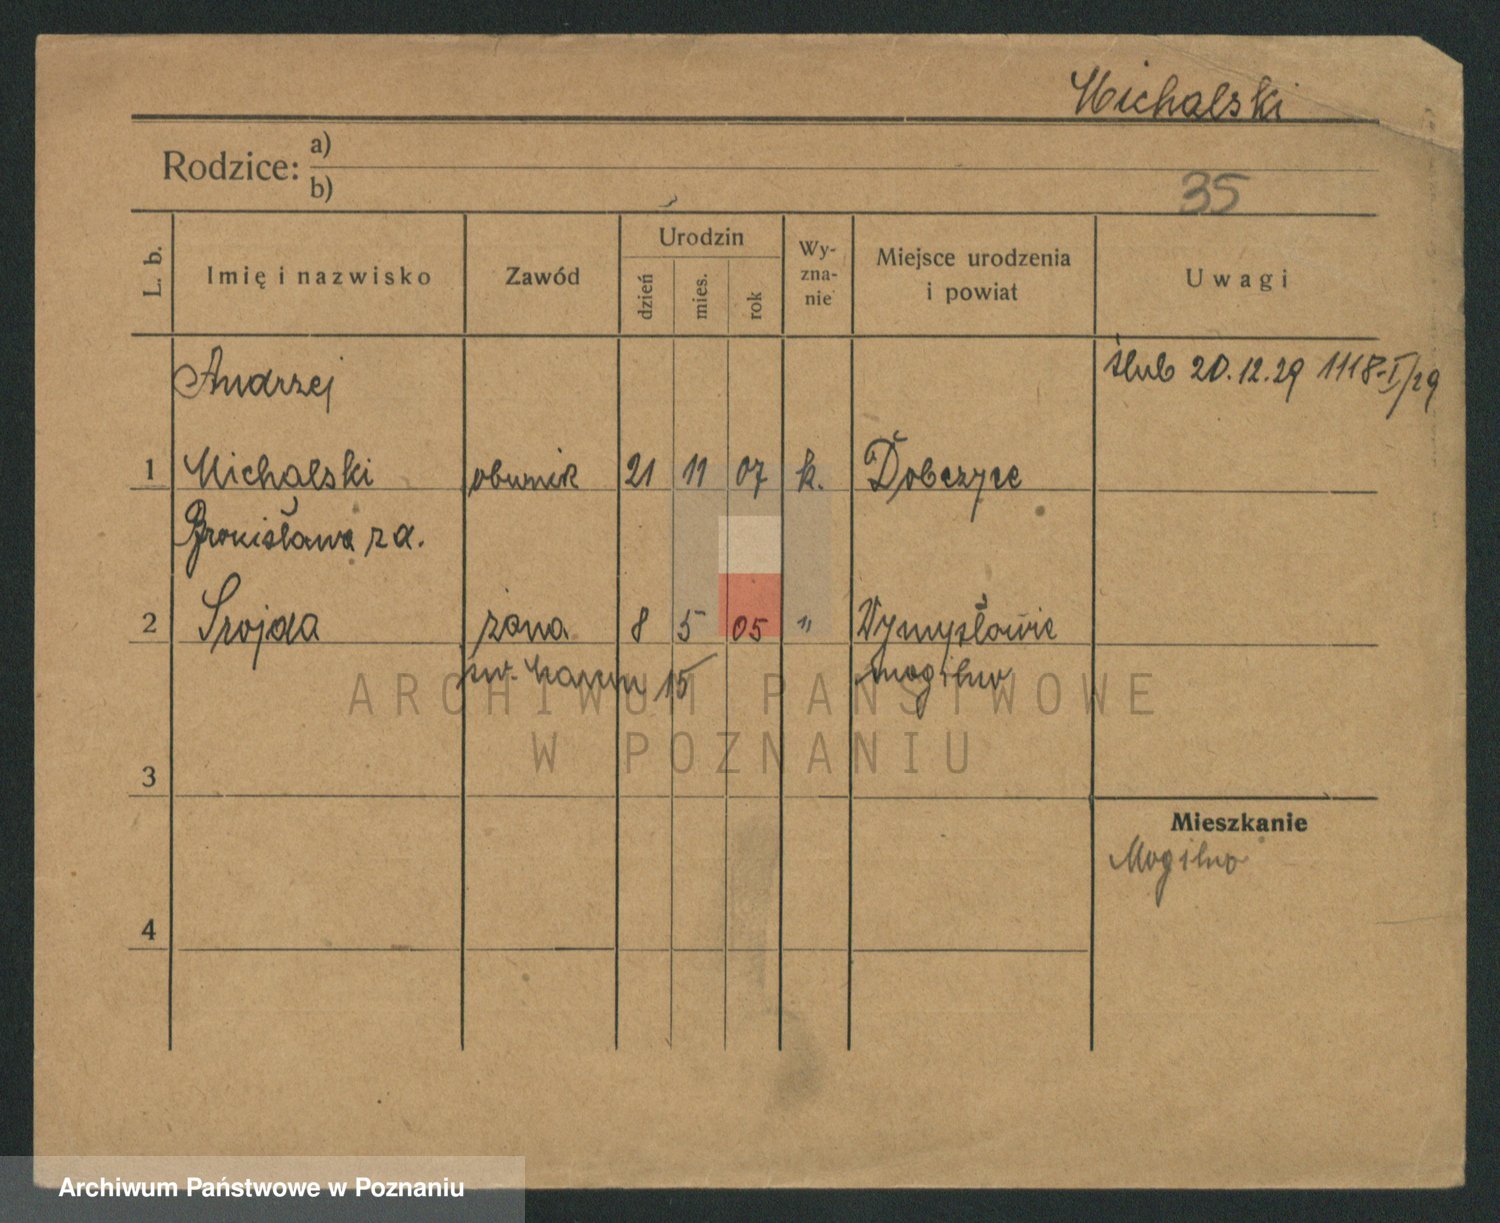 Michalski
Rodzice:
a)
b)
35
L. b.
Imię i nazwisko
Zawód
Urodzin
dzień
mies.
rok
Wy-
zna-
nie
Miejsce urodzenia
i powiat
Uwagi
Andrzej
ślub 20.12.29 1118-I/29
1 Michalski obuwnik 21 11 07 k. Dobczyce
Bronisława z d.
2 żona 8 5 05 " Wymysłowie
15 Mogilno
ARCHIWUM PAŃSTWOWE
W POZNANIU
3
Mieszkanie
Mogilno
4
Archiwum Państwowe w Poznaniu